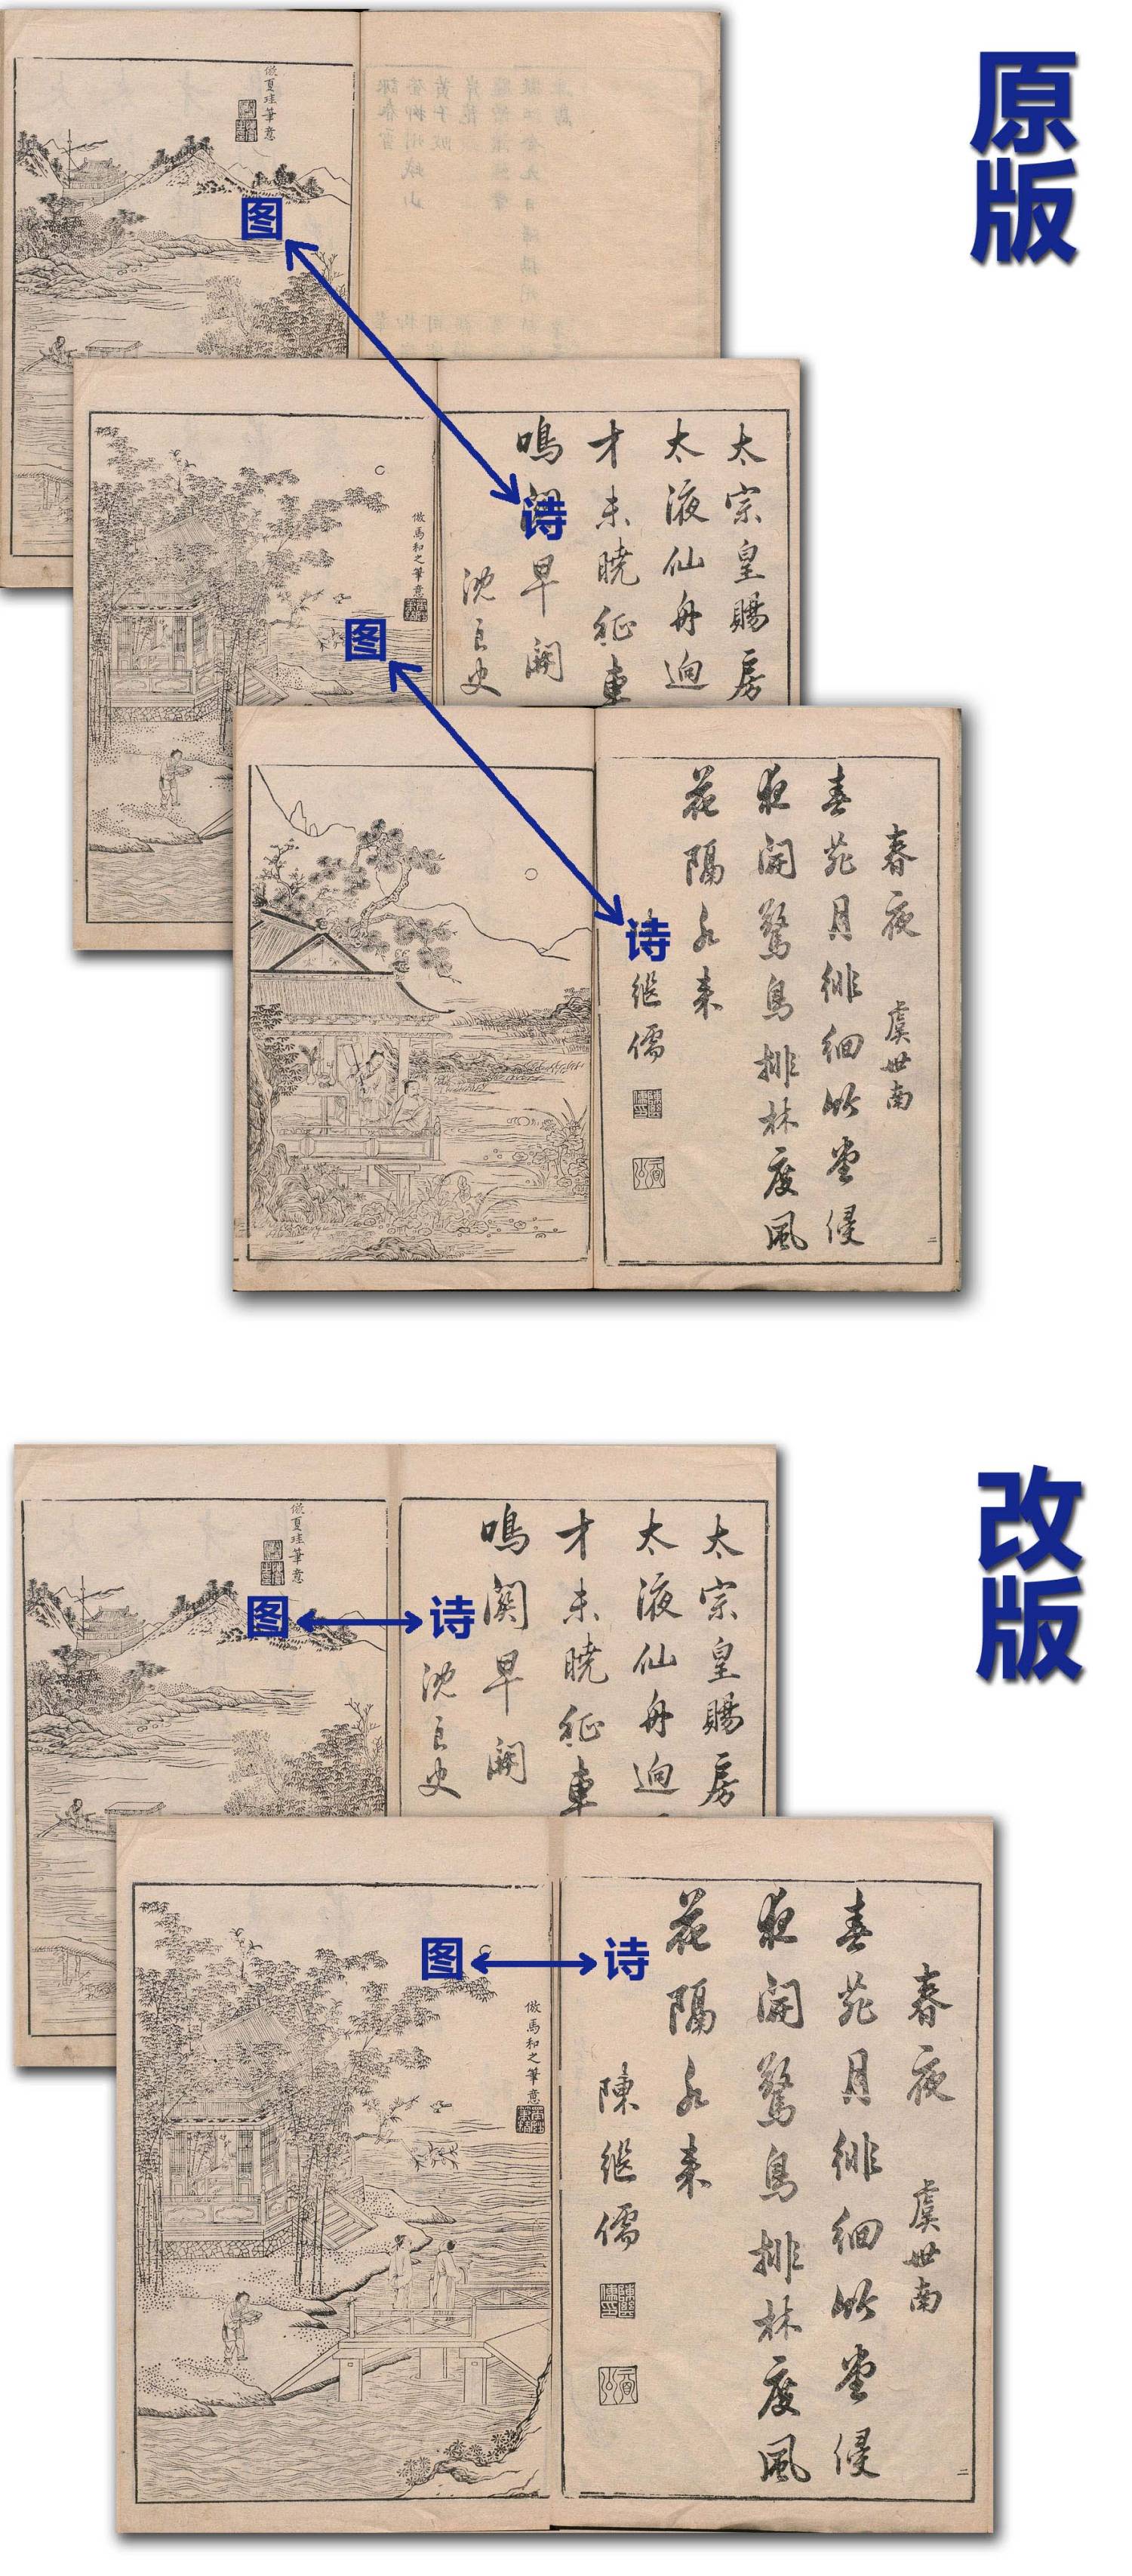 原版
倣夏珪筆意
图
诗
太宗皇賜房
太液仙舟迥
才未曉征車
鳴關早闢
沈良史
倣馬和之筆意
图
诗
春夜
虞世南
春苑月徘徊竹堂侵
夜開驚鳥排林度風
花隔水來
继儒
二
改版
倣夏珪筆意
图
诗
太宗皇賜房
太液仙舟迥
才未曉征車
鳴關早闢
沈良史
倣馬和之筆意
图
诗
春夜
虞世南
春苑月徘徊竹堂侵
夜開驚鳥排林度風
花隔水來
陳继儒
二